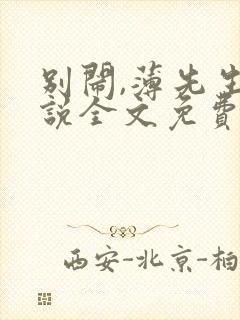 别闹,薄先生
説全文免費
西安-北京-柏